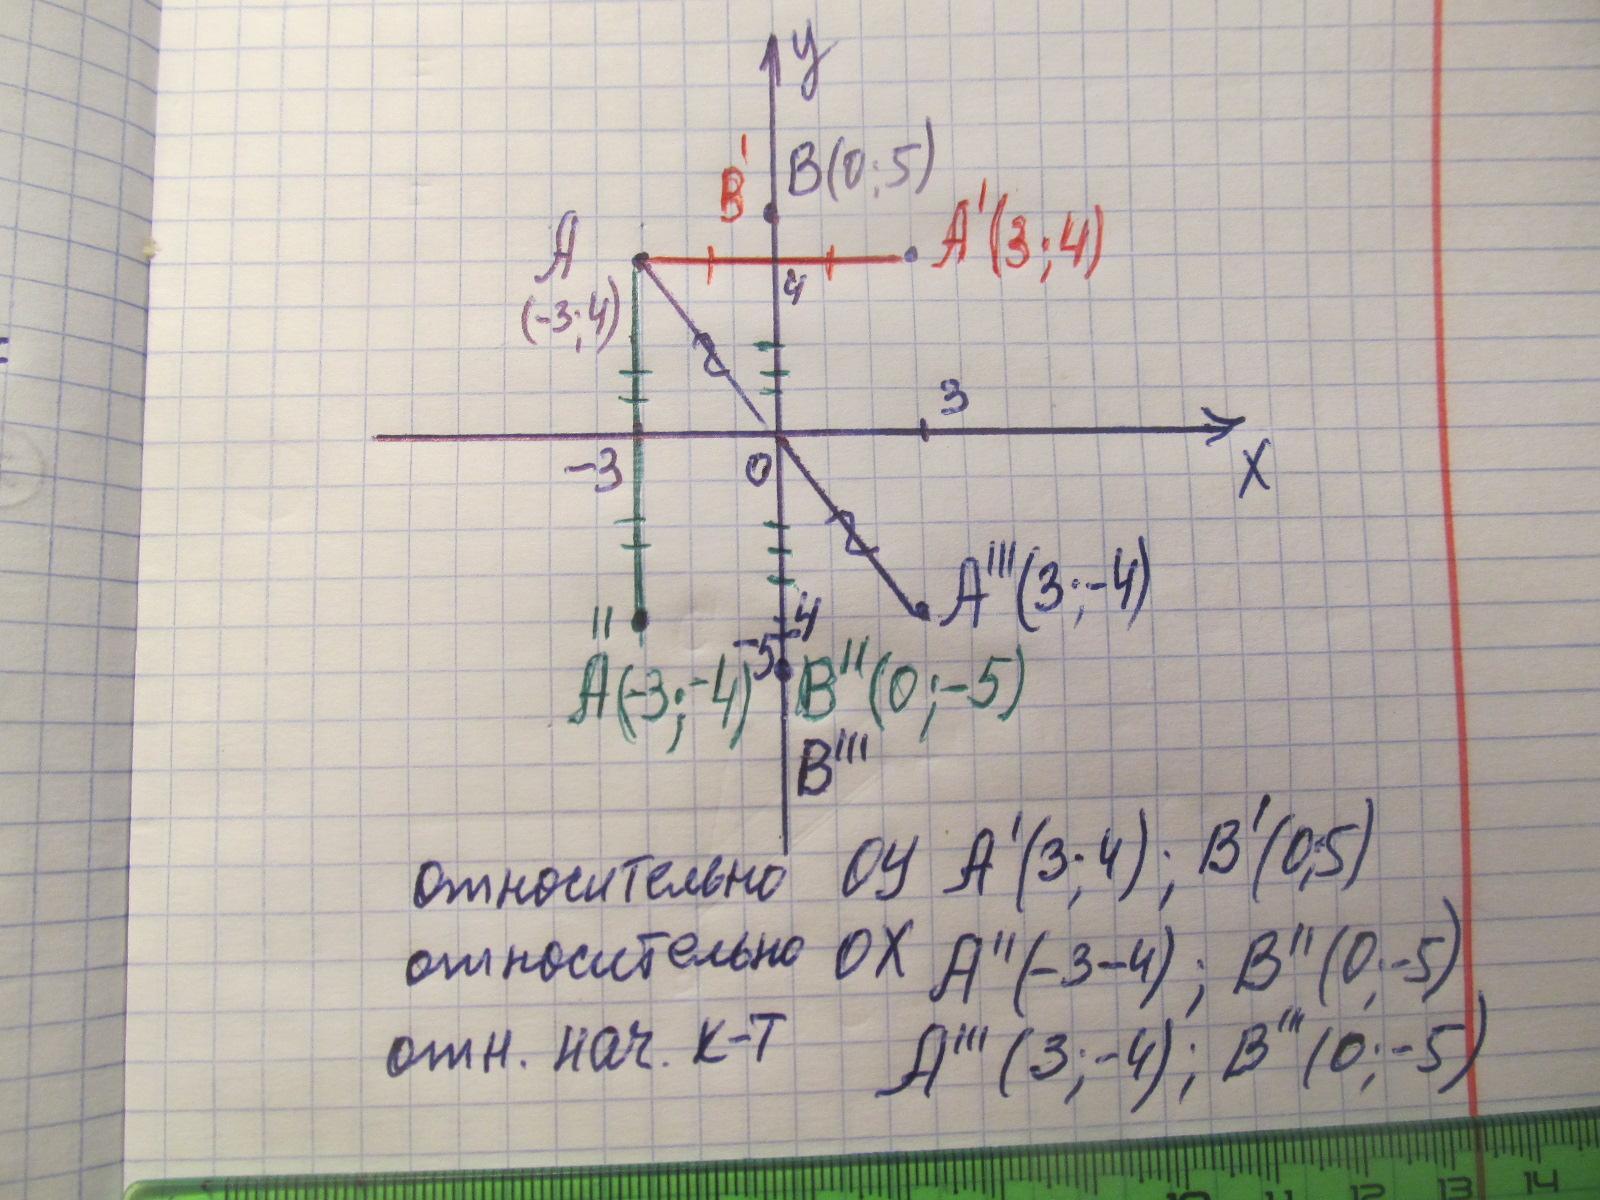 У
B' B(0;5)
A A'(3;4)
(-3;4) 4
3
-3 0 X
A'''(3;-4)
-4
-5
A''(-3;-4) B''(0;-5)
B'''
относительно ОУ A'(3;4); B'(0;5)
относительно ОХ A''(-3-4); B''(0;-5)
отн. нач. к-т A'''(3;-4); B'''(0;-5)
10 11 12 13 14